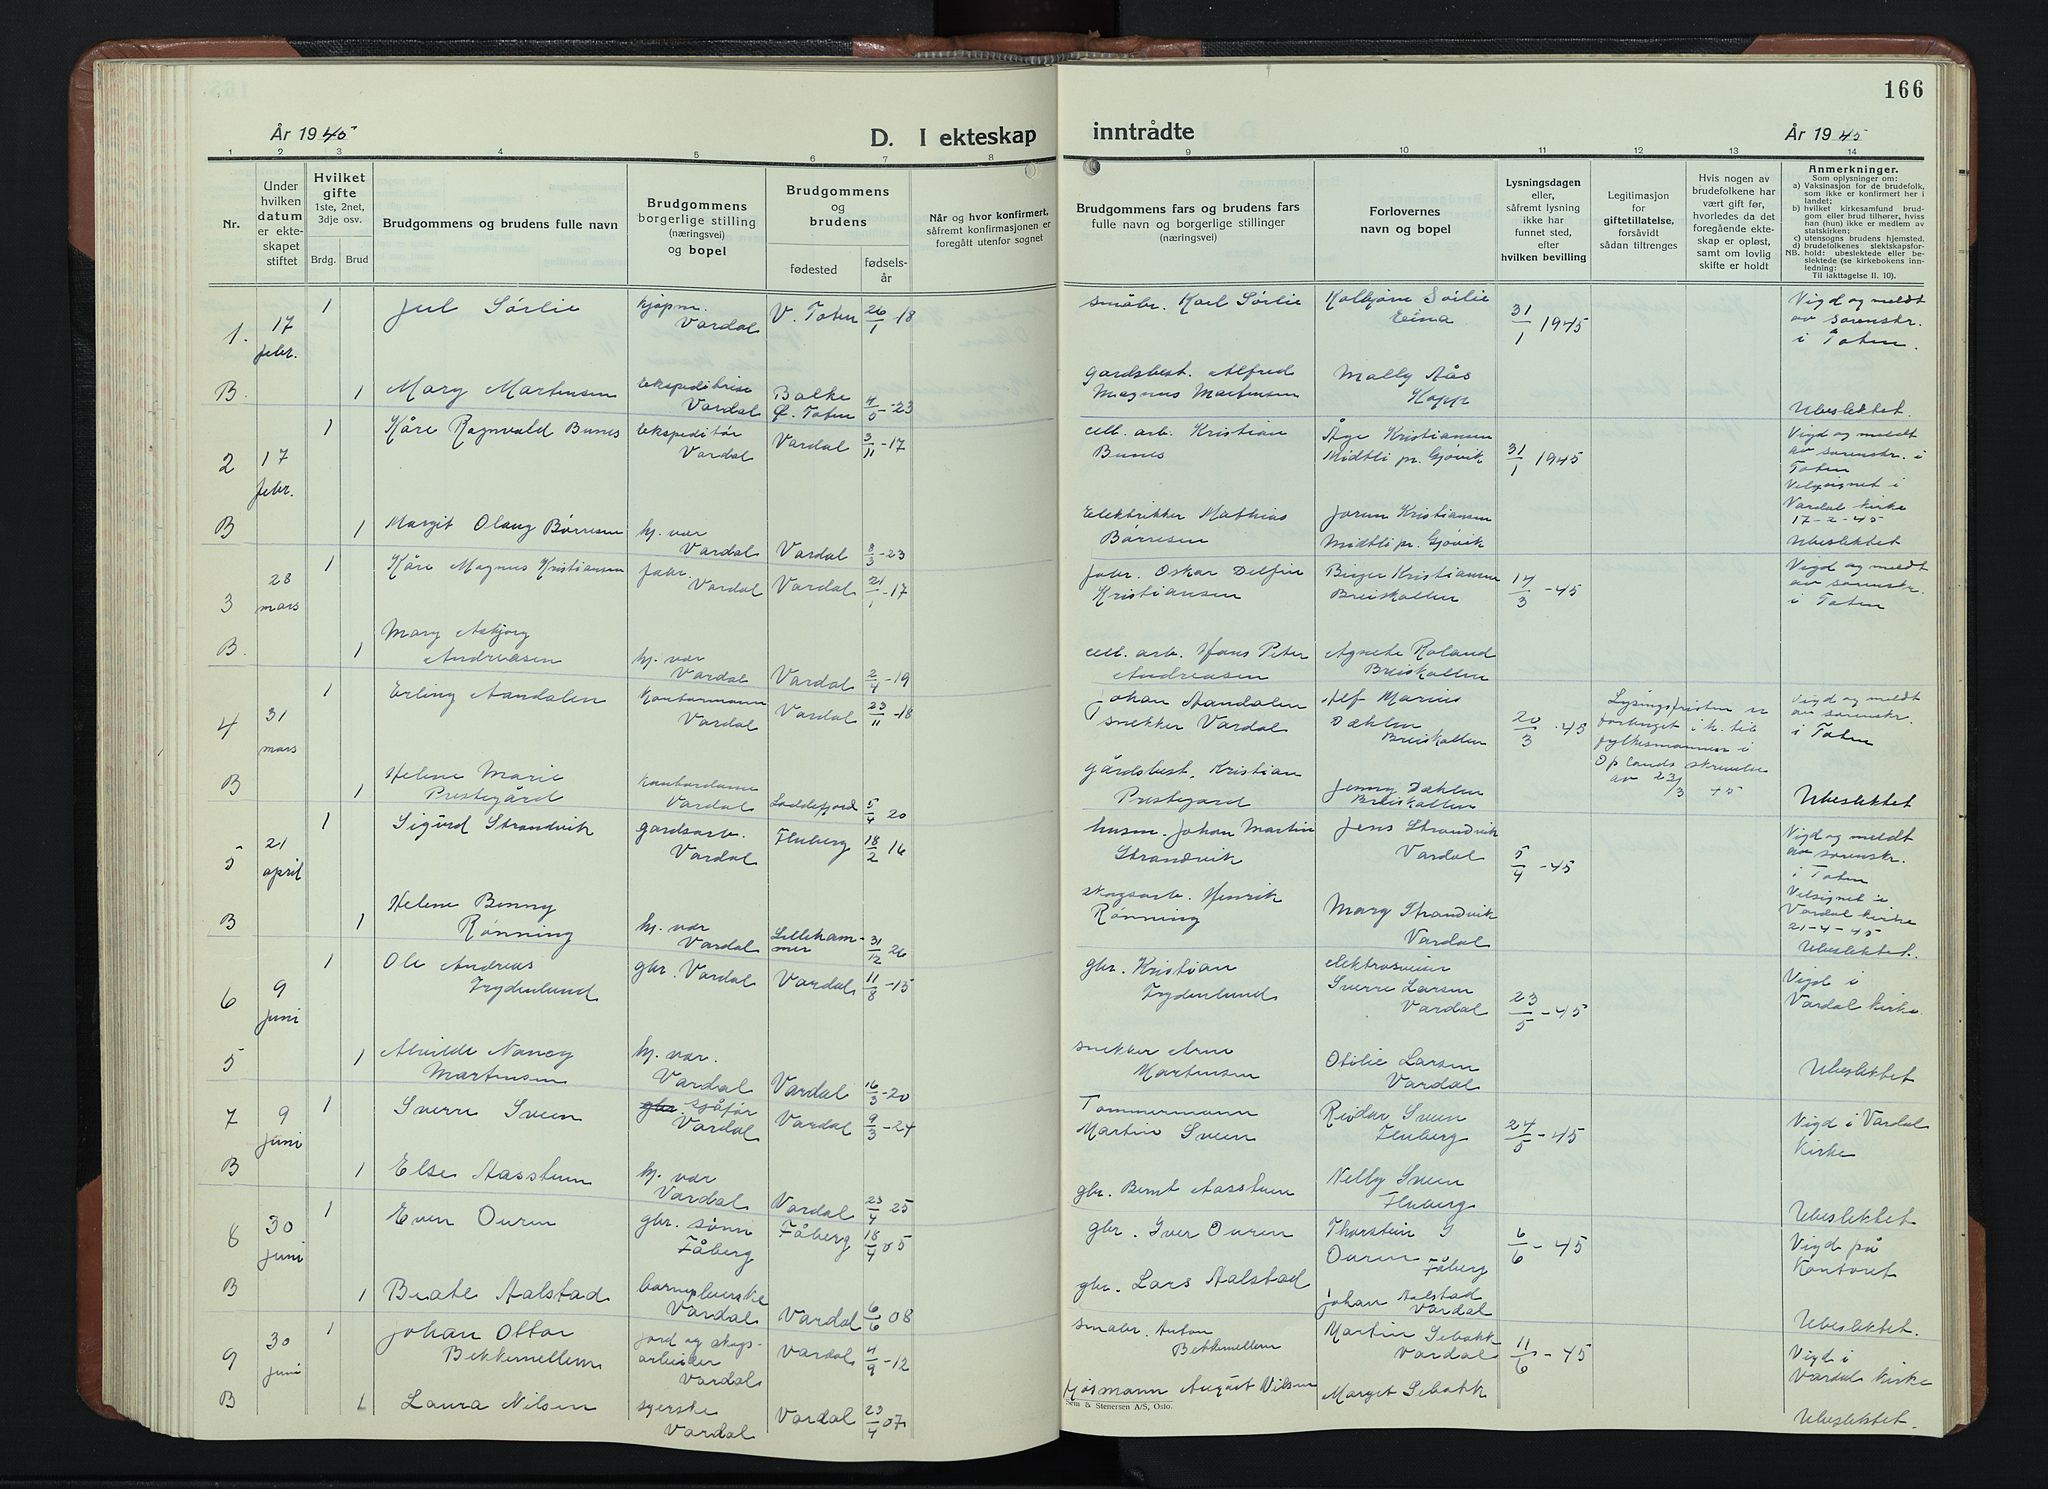 166
År 1945
D. I ekteskap
inntrådte
År 1945
1 2 3 4 5 6 7 8 9 10 11 12 13 14
Nr.
Under
hvilken
datum
er ekte-
skapet
stiftet
Hvilket
gifte
1ste, 2net,
3dje osv.
Brdg. Brud
Brudgommens og brudens fulle navn
Brudgommens
borgerlige stilling
(næringsvei)
og bopel
Brudgommens
og
brudens
fødested
fødsels-
år
Når og hvor konfirmert,
såfremt konfirmasjonen er
foregått utenfor sognet
Brudgommens fars og brudens fars
fulle navn og borgerlige stillinger
(næringsvei)
Forlovernes
navn og bopel
Lysningsdagen
eller,
såfremt lysning
ikke har
funnet sted,
efter
hvilken bevilling
Legitimasjon
for
giftetillatelse,
forsåvidt
sådan tiltrenges
Hvis nogen av
brudefolkene har
vært gift før,
hvorledes da det
foregående ekte-
skap er opløst,
samt om lovlig
skifte er holdt
Anmerkninger.
Som oplysninger om:
a) Vaksinasjon for de brudefolk,
som ikke er konfirmert her i
landet;
b) hvilket kirkesamfund brud-
gom eller brud tilhører, hviss
han (hun) ikke er medlem av
statskirken;
c) utensogns brudens hjemsted.
d) brudefolkenes slektskapsfor-
NB. hold: ubeslektede eller be-
slektede (se kirkebokens inn-
ledning:
Til iakttagelse II. 10).
1. 17 febr. 1 Jul Sørlie kjøpm. Vardal V. Toten 26/1-18 småbr. Karl Sørlie Kolbjørn Sørlie Eina 31/1 1945 Vigd og meldt av sorenskr. i Toten.
B. 1 Mary Martensen ekspeditrise Vardal Balke Ø. Toten 4/5-23 gardsbest. Alfred Magnus Martensen Molly Aås Kapp Ubeslektet.
2 17 febr. 1 Kåre Ragnvald Bunes ekspeditør Vardal Vardal 3/11-17 cell. arb. Kristian Bunes Åge Kristiansen Midtli pr. Gjøvik 31/1 1945 Vigd og meldt av sorenskr. i Toten Velsignet i Vardal kirke 17-2-45
B 1 Margit Olaug Børresen hj. vær Vardal Vardal 8/3-23 Elektrikker Mathias Børresen Jorun Kristiansen Midtli pr. Gjøvik Ubeslektet
3 28 mars 1 Kåre Magnus Kristiansen fabr. Vardal Vardal 21/1-17 fabr. Oskar Delfin Kristiansen Birger Kristiansen Breiskallen 14/3-45 Vigd og meldt av sorenskr. i Toten
B. 1 Mary Asbjørg Andreasen hj. vær Vardal Vardal 2/4-19 cell. arb. Hans Peter Andreasen Agnete Roland Breiskallen
4 31 mars 1 Erling Aandalen Kontormann Vardal Vardal 23/11-18 Johan Aandalen snekker Vardal Alf Marius Dæhlen Breiskallen 20/3-45 Lysingsfristen er forkortet i h. til fylkesmannen i Oplands skrivelse av 23/3 45 Vigd og meldt av sorenskr. i Toten
B 1 Helene Marie Prestegård kontordame Vardal Loddefjord 5/4 20 gårdsbest. Kristian Prestegård Jenny Dæhlen Breiskallen Ubeslektet
5 21 april 1 Sigurd Strandvik gardsarb. Vardal Fluberg 18/2 16 husm. Johan Martin Strandvik Jens Strandvik Vardal 5/4-45 Vigd og meldt av sorenskr. i Toten Velsignet i Vardal kirke 21-4-45
B 1 Helene Benny Rønning hj. vær Vardal Lillehammer 31/12 26 skogsarb. Henrik Rønning Mary Strandvik Vardal Ubeslektet.
6 9 juni 1 Ole Andreas Frydenlund gbr. Vardal Vardal 11/8-15 gbr. Kristian Frydenlund elektrosveiser Sverre Larsen Vardal 23/5-45 Vigd i Vardal kirke.
5 1 Alvilde Nancy Martinsen hj. vær. Vardal Vardal 16/3-20 snekker Arne Martensen Otilie Larsen Vardal Ubeslektet
7 9 juni 1 Sverre Sveen gbr. Sjåfør Vardal Vardal 9/3-24 Tømmermann Martin Sveen Reidar Sveen Fluberg 24/5-45 Vigd i Vardal Kirke
B 1 Else Aasstuen hj. vær Vardal Vardal 23/4 25 gbr. Bernt Aasstuen Nelly Sveen Fluberg Ubeslektet
8 30 juni 1 Even Ouren gbr. sønn Fåberg Fåberg 18/4 05 gbr. Iver Ouren Thorstein G Ouren Fåberg 6/6-45 Vigd på Kontoret
B 1 Beate Aalstad barnepleierske Vardal Vardal 6/6 08 gbr. Lars Aalstad Johan Aalstad Vardal Ubeslektet.
9 30 juni 1 Johan Ottar Bekkemellem jord og skogs-arbeider Vardal Vardal 4/9-12 småbr. Anton Bekkemellem Martin Sebakk Vardal 11/6-45 Vigd i Vardal Kirke
B 1 Laura Nilsen syerske Vardal Vardal 23/4 07 fjøsmann August Nilsen Margit Sebakk Ubeslektet.
Sem & Stenersen A/S, Oslo.